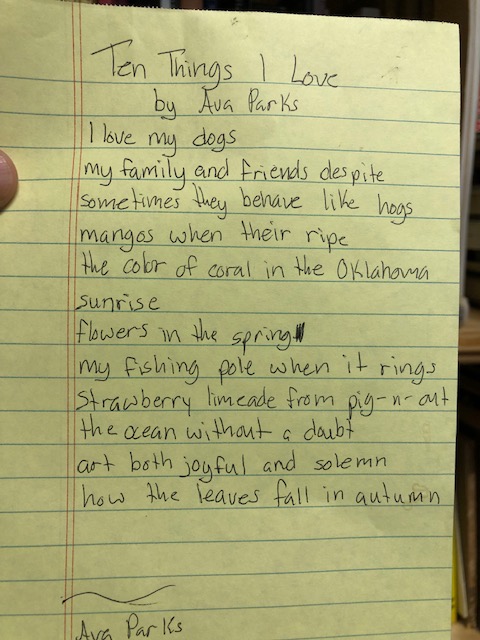 Ten Things I Love
by Ava Parks
I love my dogs
my family and friends despite
sometimes they behave like hogs
mangos when their ripe
the color of coral in the Oklahoma
sunrise
flowers in the spring
my fishing pole when it rings
Strawberry limeade from pig-n-out
the ocean without a doubt
art both joyful and solemn
how the leaves fall in autumn
Ava Parks